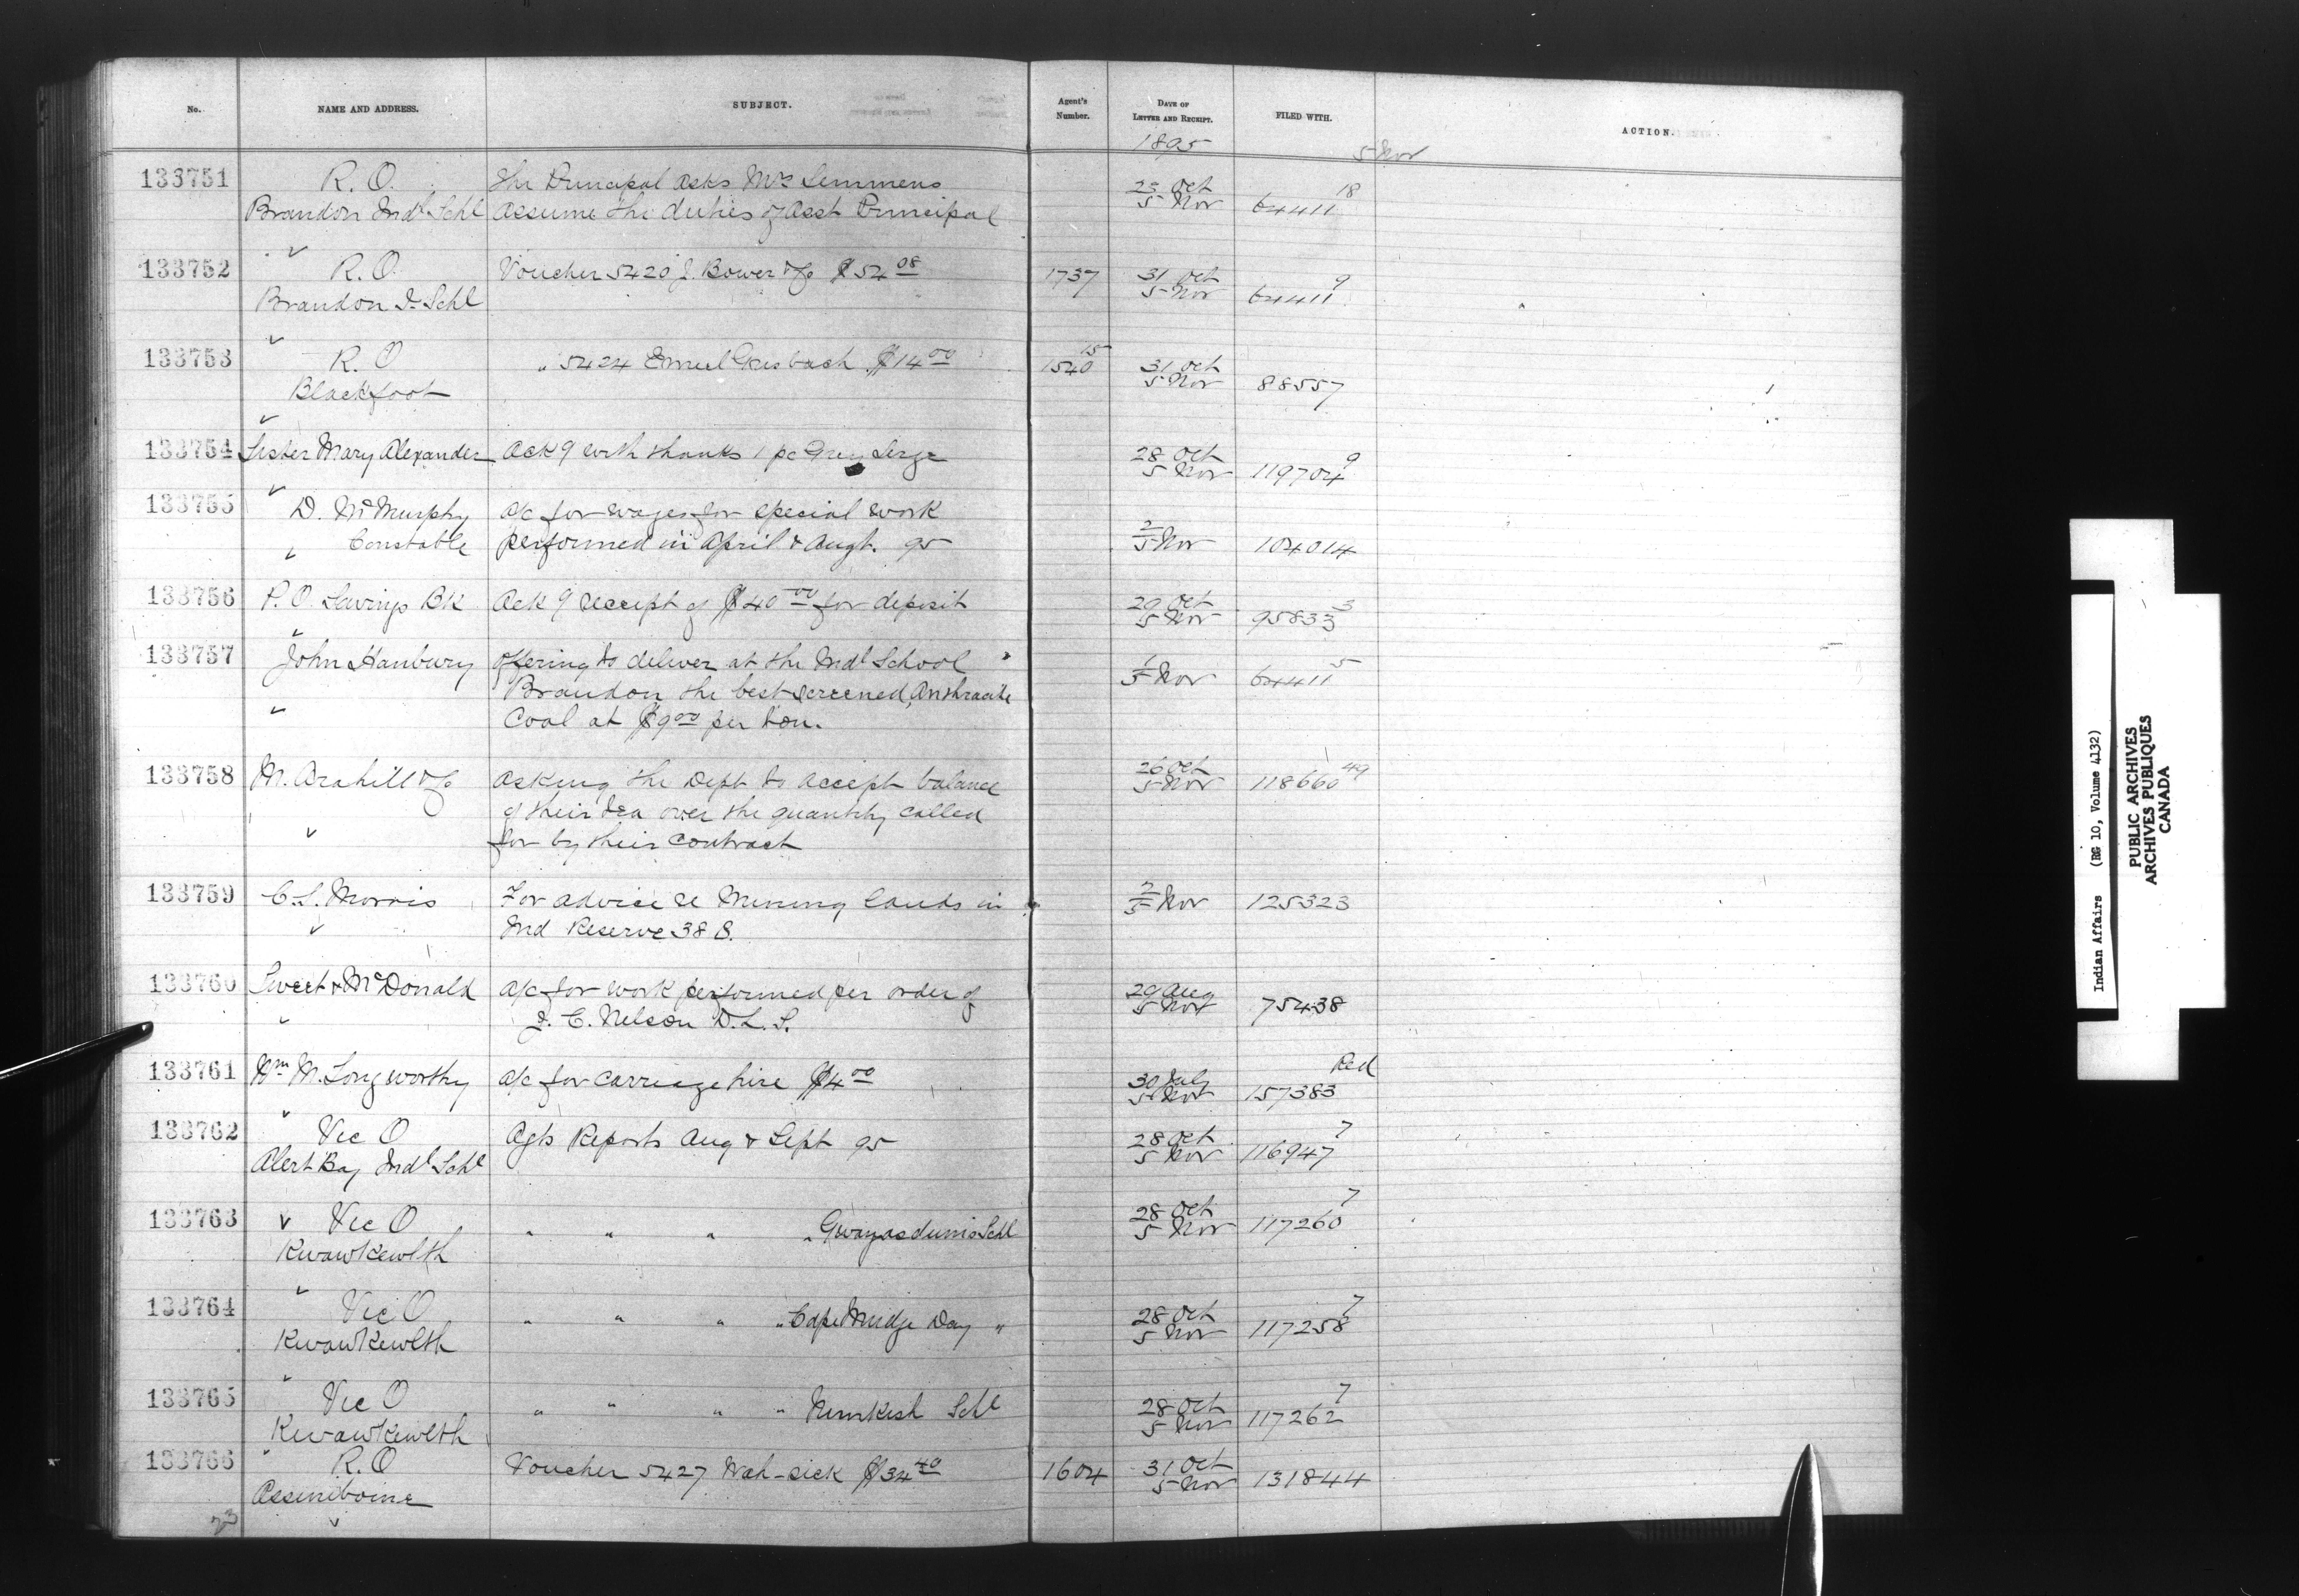 No. NAME AND ADDRESS. SUBJECT. Agent's Number. DATE OF LETTER AND RECEIPT. FILED WITH. ACTION.
1895 5 Nov
133751 R. O. The Principal asks Mrs Semmens 23 Oct 18
Brandon Indl Schl assume the duties of Asst Principal 5 Nov 64411
133752 R. O. Voucher 5420 J. Bower & Co $54 08 1737 31 Oct 9
Brandon I. Schl 5 Nov 64411
133753 R. O " 5424 $14 00 1540 15 31 Oct
Blackfoot 5 Nov 88557
133754 Sister Mary Alexander Ack g with thanks 1 pc Grey Serge 28 Oct 9
5 Nov 119704
133755 D. McMurphy a/c for wages for special work 2
Constable performed in April & Augt. 95 5 Nov 104014
133756 P. O. Savings Bk Ack g receipt of $40 00 for deposit 29 Oct 3
5 Nov 95833
133757 John Hanbury offering to deliver at the Indl School 1 5
Brandon the best screened, Anthracite 5 Nov 64411
Coal at $9 00 per ton.
133758 M. Brahill & Co asking the Dept to accept balance 26 Oct 49
of their tea over the quantity called 5 Nov 118660
for by their contract
133759 C. S. Morris For advice re Mining lands in 5 Nov 125323
Ind Reserve 38 B.
133760 Sweet & McDonald a/c for work performed per order of 29 Aug
J. C. Nelson D. L. S. 5 Nov 75438
133761 Wm M. Longworthy a/c for carriage hire $4 00 30 July Red
5 Nov 157383
133762 Vic O Agts Reports Aug & Sept 95 28 Oct 7
Alert Bay Indl Schl 5 Nov 116947
133763 Vic O " " " " Gwayasdums Schl 28 Oct 7
Kwawkewlth 5 Nov 117260
133764 Vic O " " " " Cape Mudge Day " 28 Oct 7
Kwawkewlth 5 Nov 117258
133765 Vic O " " " " Nimkish Schl 28 Oct 7
Kwawkewlth 5 Nov 117262
133766 R. O Voucher 5427 Wah-sick $34 40 1604 31 Oct
Assiniboine 5 Nov 131844
23
Indian Affairs (RG 10, Volume 4132)
PUBLIC ARCHIVES
ARCHIVES PUBLIQUES
CANADA